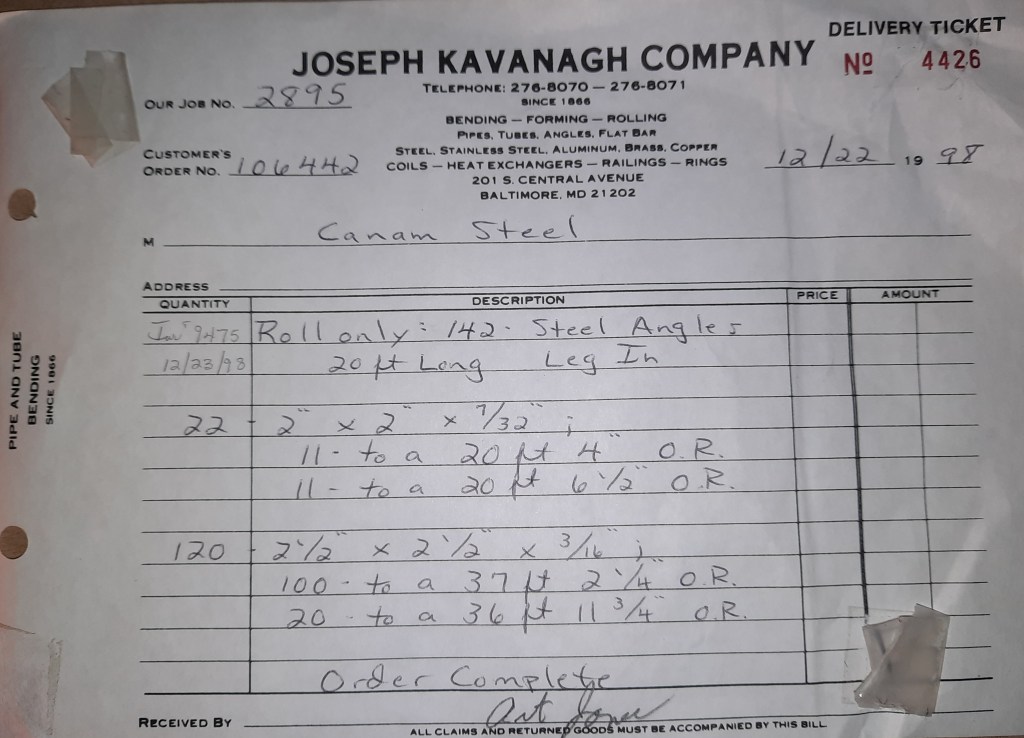 DELIVERY TICKET
JOSEPH KAVANAGH COMPANY
Nº 4426
TELEPHONE: 276-8070 — 276-8071
SINCE 1866
OUR JOB NO. 2895
BENDING — FORMING — ROLLING
PIPES, TUBES, ANGLES, FLAT BAR
STEEL, STAINLESS STEEL, ALUMINUM, BRASS, COPPER
CUSTOMER'S ORDER NO. 106442
COILS — HEAT EXCHANGERS — RAILINGS — RINGS
12/22 19 98
201 S. CENTRAL AVENUE
BALTIMORE, MD 21202
M Canam Steel
ADDRESS
QUANTITY DESCRIPTION PRICE AMOUNT
Inv# 9475 Roll only: 142 - Steel Angles
12/23/98 20 ft Long Leg In
22 - 2" x 2" x 7/32" ;
11 - to a 20 ft 4" O.R.
11 - to a 20 ft 6 1/2" O.R.
120 - 2 1/2" x 2 1/2" x 3/16" ;
100 - to a 37 ft 2 1/4" O.R.
20 - to a 36 ft 11 3/4" O.R.
Order Complete
RECEIVED BY Art Jones
ALL CLAIMS AND RETURNED GOODS MUST BE ACCOMPANIED BY THIS BILL
PIPE AND TUBE
BENDING
SINCE 1866